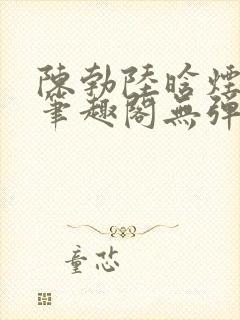 陳勃陸晗煙
筆趣閣無彈
童恣